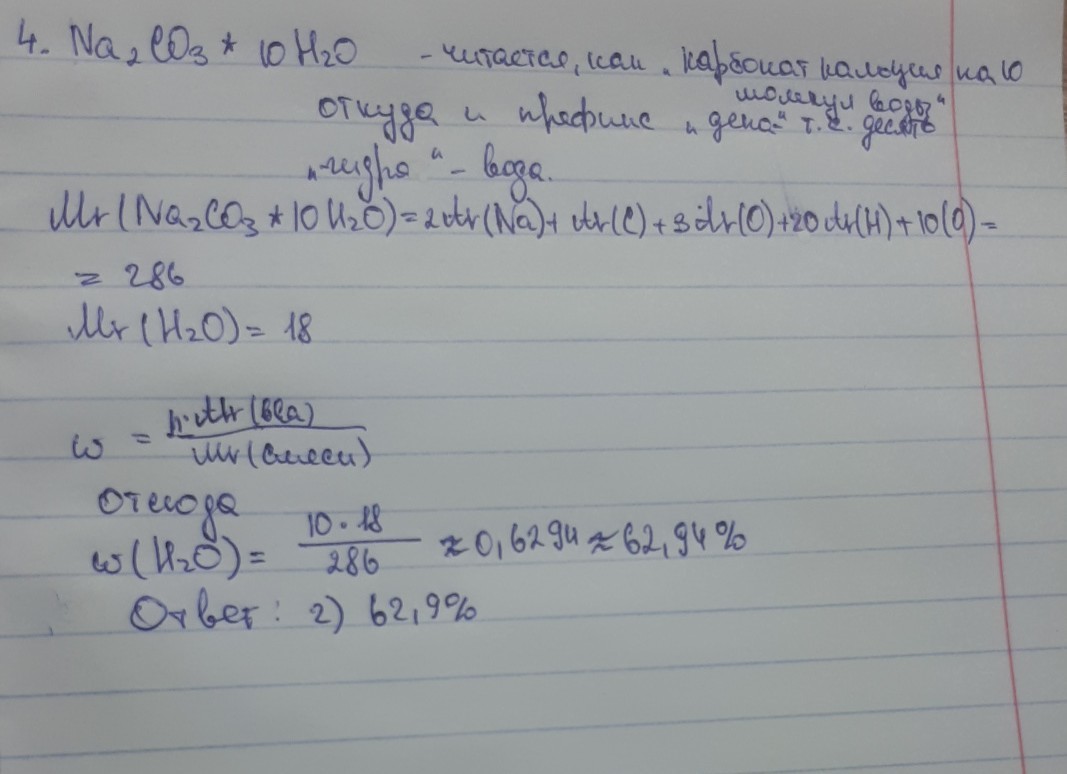 4. Na₂CO₃ * 10 H₂O - читается, как „карбонат кальция на 10
молекул воды"
откуда и префикс „дека-" т.е. десять
„гидра" - вода.
Mr(Na₂CO₃ * 10 H₂O) = 2Ar(Na) + Ar(C) + 3Ar(O) + 20Ar(H) + 10(O) =
= 286
Mr(H₂O) = 18
ω = n·Ar(вва) / Mr(смеси)
Отсюда
ω(H₂O) = 10·18 / 286 ≈ 0,6294 ≈ 62,94%
Ответ: 2) 62,9%